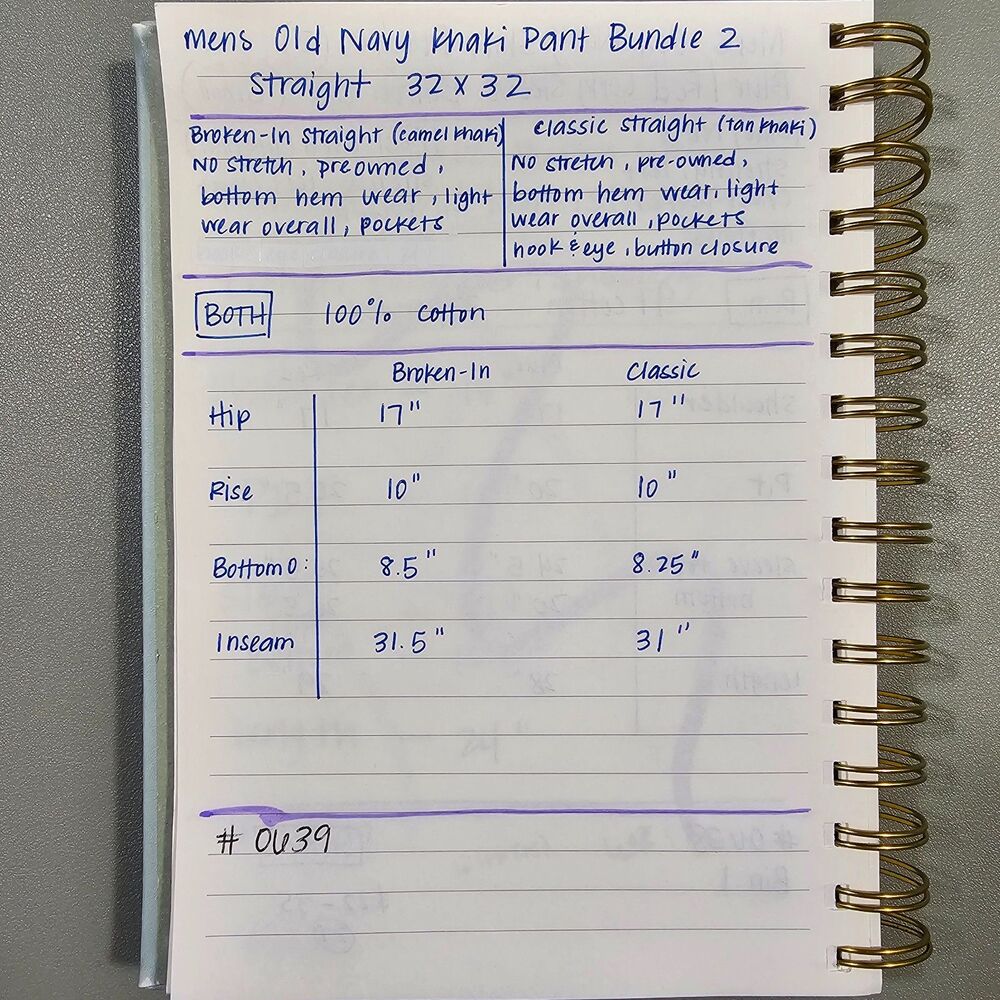 mens Old Navy Khaki Pant Bundle 2
Straight 32 x 32
Broken-In Straight (camel khaki)
No stretch, preowned,
bottom hem wear, light
wear overall, pockets
Classic straight (tan khaki)
No stretch, pre-owned,
bottom hem wear, light
wear overall, pockets
hook & eye, button closure
BOTH 100% cotton
Broken-In Classic
Hip 17" 17"
Rise 10" 10"
Bottom O: 8.5" 8.25"
Inseam 31.5" 31"
# 0639